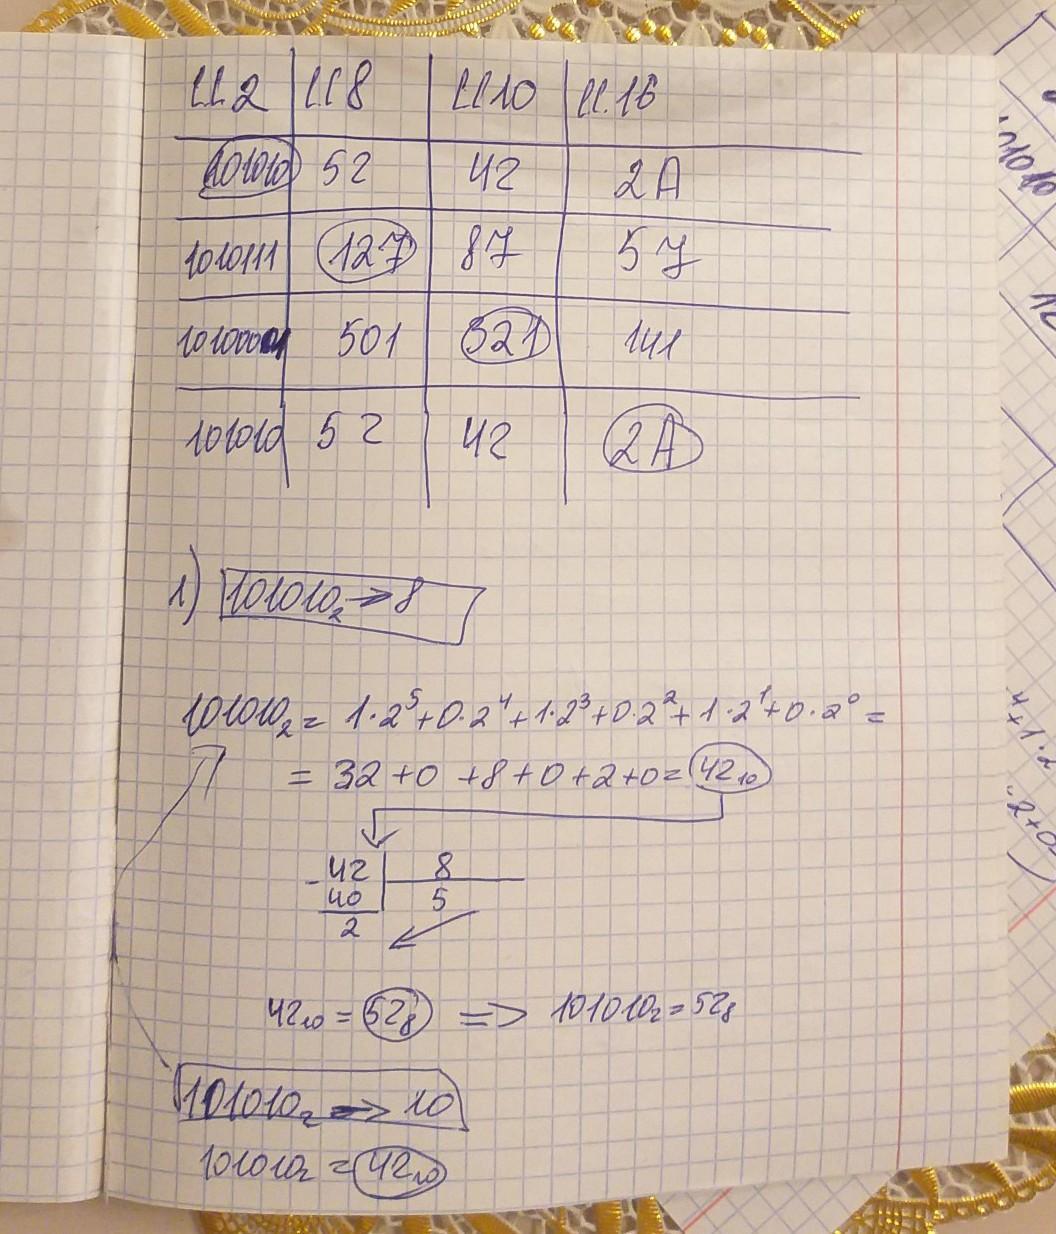 С.С.2 С.С.8 С.С.10 С.С.16
101010 52 42 2A
1010111 127 87 57
501 321 141
101010 52 42 2A
1) 101010₂ → 8
101010₂ = 1·2⁵+0·2⁴+1·2³+0·2²+1·2¹+0·2⁰ =
= 32+0+8+0+2+0=42₁₀
-42 8
40 5
2
42₁₀ = 52₈ => 101010₂=52₈
101010₂ → 10
101010₂ = 42₁₀